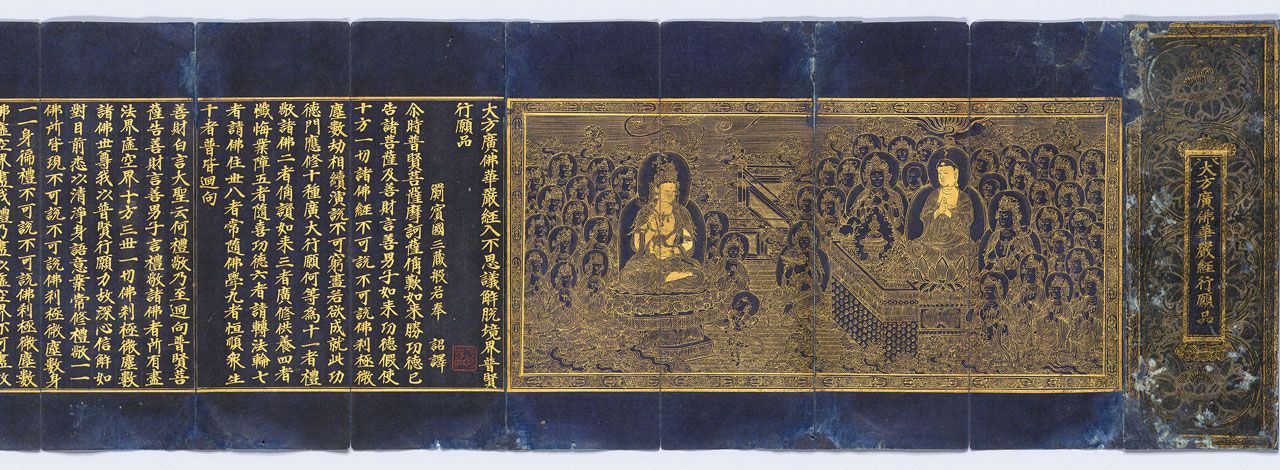 大方廣佛華嚴經行願品
大方廣佛華嚴経入不思議解脫境界普賢
行願品
罽賓國三藏般若奉 詔譯
尒時普賢菩薩摩訶薩偁歎如来勝功德已
告諸菩薩及善財言善男子如来功德假使
十方一切諸佛経不可說不可說佛刹極微
塵數劫相續演說不可窮盡若欲成就此功
德門應修十種廣大行願何等為十一者禮
敬諸佛二者偁讚如来三者廣修供養四者
懺悔業障五者隨喜功德六者請轉法輪七
者請佛住世八者常隨佛學九者恒順衆生
十者普皆迴向
善財白言大聖云何禮敬乃至迴向普賢菩
薩告善財言善男子言禮敬諸佛者所有盡
法界虛空界十方三世一切佛刹極微塵數
諸佛世尊我以普賢行願力故深心信解如
對目前悉以清淨身語意業常修禮敬一一
佛所皆現不可說不可說佛刹極微塵數身
一一身徧禮不可說不可說佛刹極微塵數
佛虛空界盡我禮乃盡以虛空界不可盡故